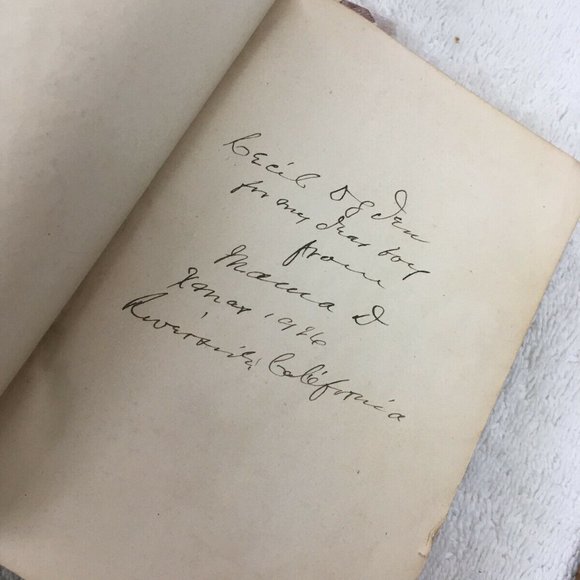 Cecil Ogden
for my dear boy
from
Mama D
Xmas 1926
Riverside, California